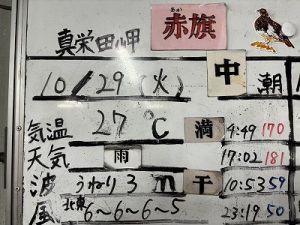 あか
真栄田岬 赤旗
10/29(火) 中潮
気温 27℃ 満 4:49 170
天気 雨 17:02 181
波 うねり3m 干 10:53 59
風 北東 6~6~6~5 23:19 50